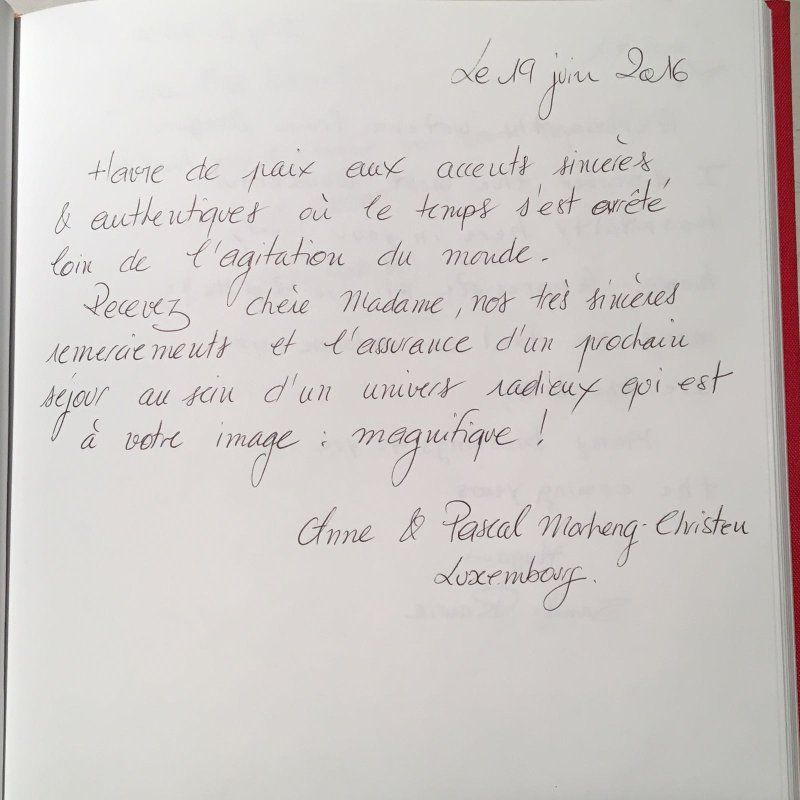 Le 19 juin 2016
Havre de paix aux accents sincères
& authentiques où le temps s'est arrêté
loin de l'agitation du monde.
Recevez chère Madame, nos très sincères
remerciements et l'assurance d'un prochain
séjour au sein d'un univers radieux qui est
à votre image : magnifique !
Anne & Pascal Morheng-Christen
Luxembourg.